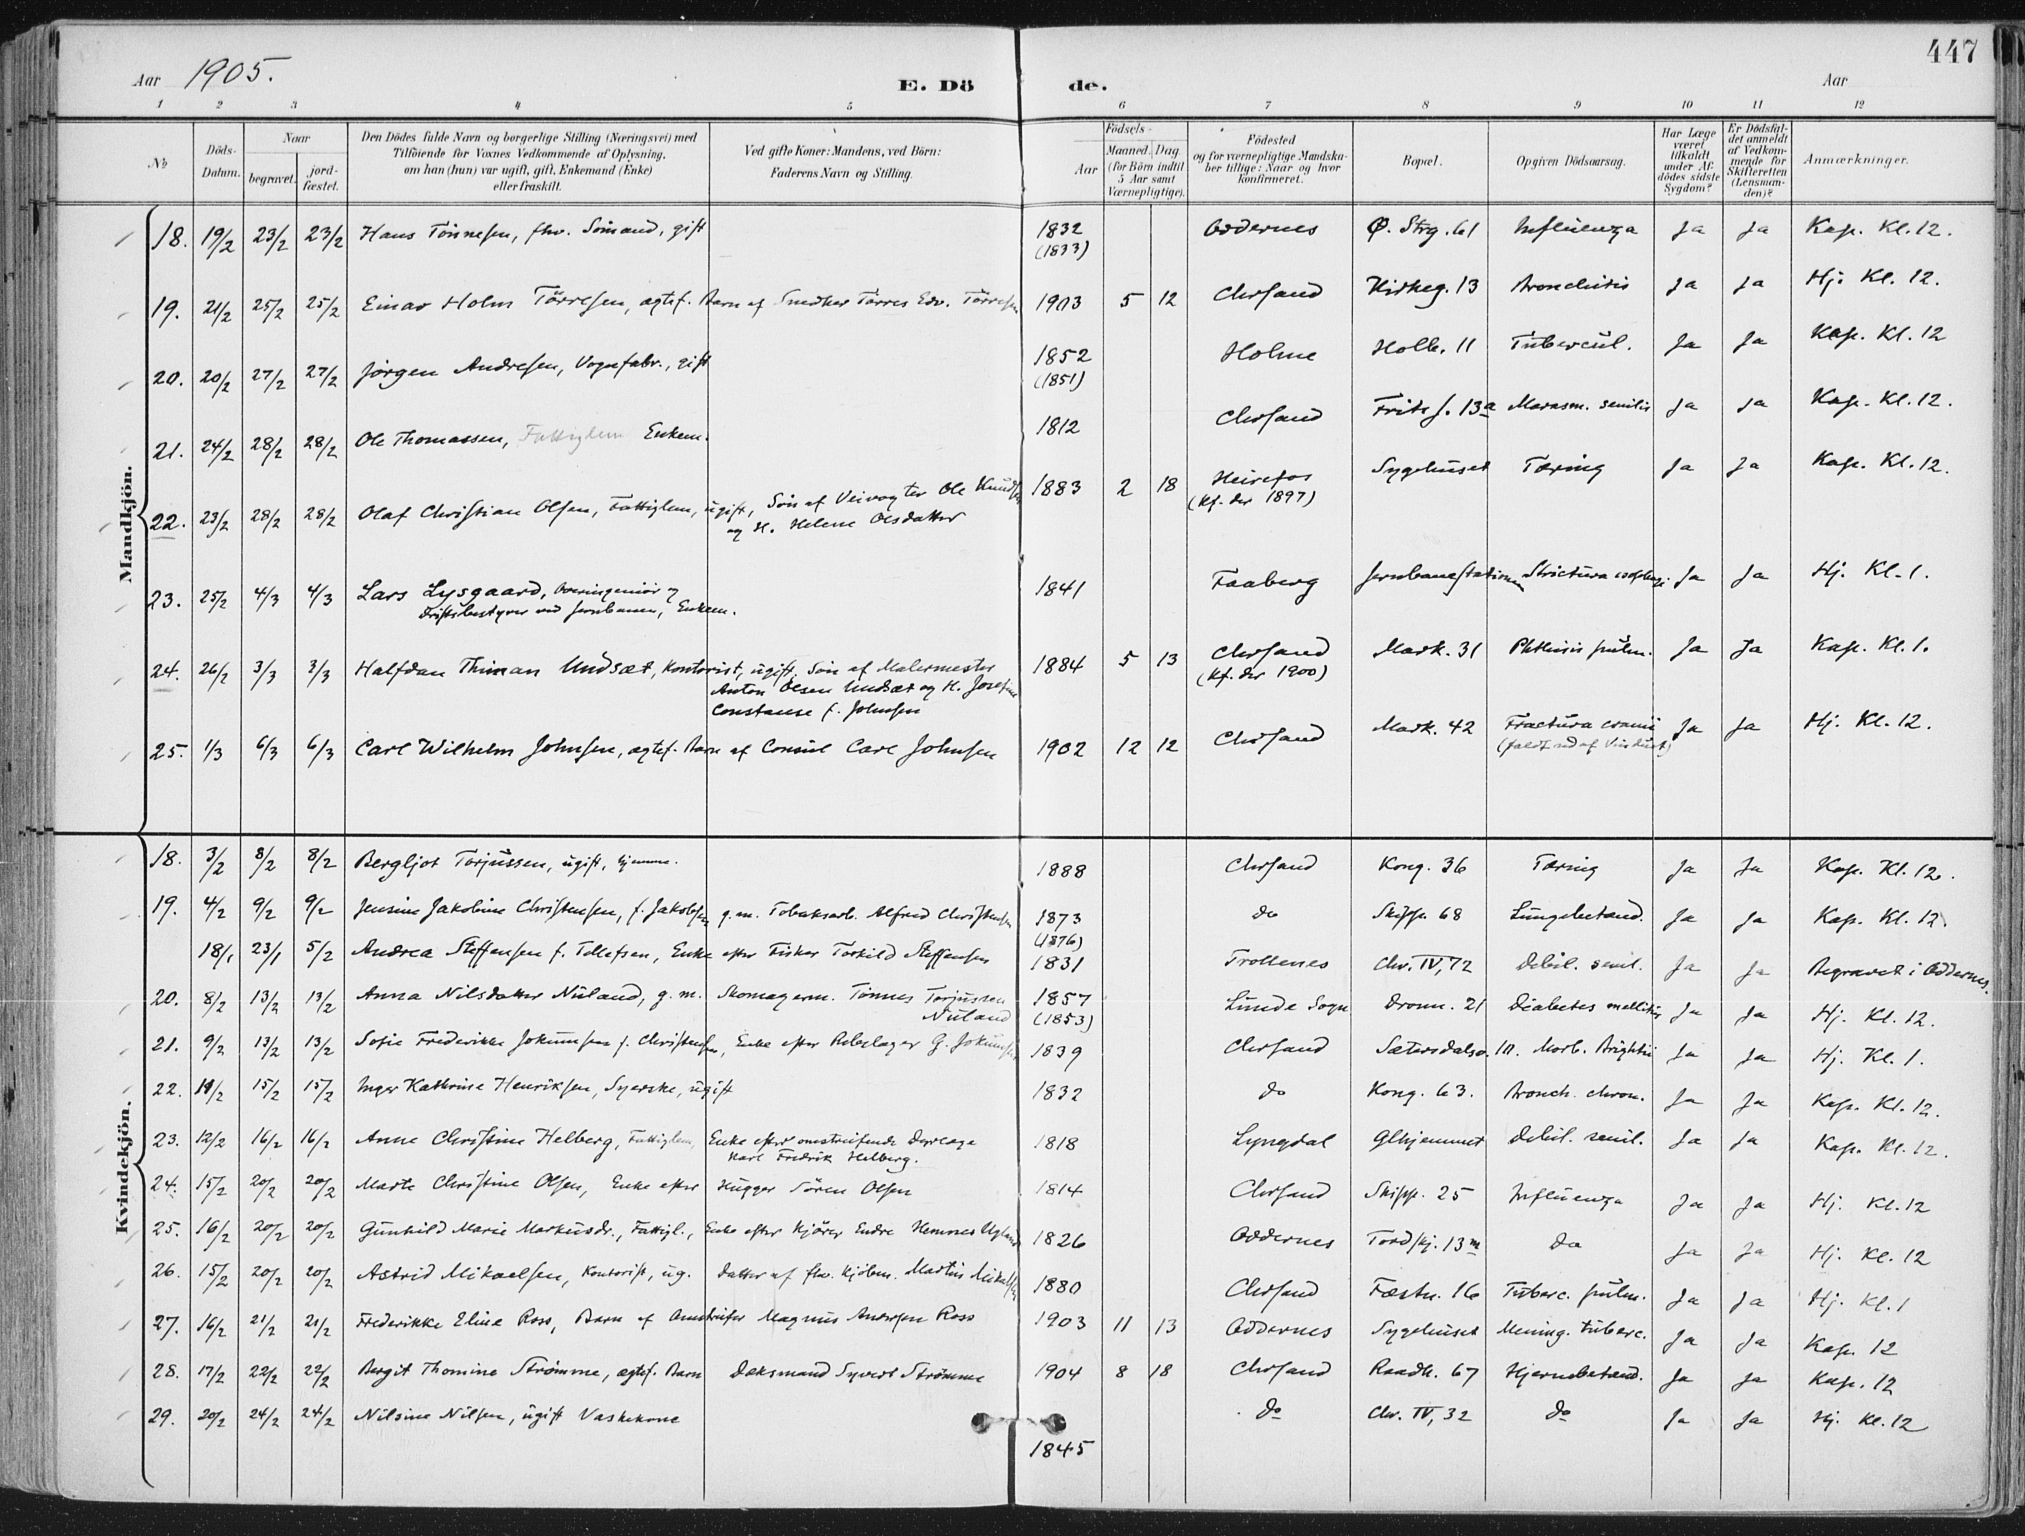 447
Aar 1905.
E. Dö de.
Aar
1 2 3 4 5 6 7 8 9 10 11 12
No
Döds-Datum.
Naar
begravet.
jord-fæstet.
Den Dödes fulde Navn og borgerlige Stilling (Næringsvei) med
Tilföiende for Voxnes Vedkommende af Oplysning,
om han (hun) var ugift, gift, Enkemand (Enke)
eller fraskilt.
Ved gifte Koner: Mandens, ved Börn:
Faderens Navn og Stilling.
Födsels-
Aar
Maaned. Dag
(for Börn indtil
5 Aar samt
Værnepligtige).
Födested
og for værnepligtige Mandska-
ber tillige: Naar og hvor
konfirmeret.
Bopæl.
Opgiven Dödsaarsag.
Har Læge
været
tilkaldt
under Af-
dödes sidste
Sygdom?
Er Dödsfal-
det anmeldt
af Vedkom-
mende for
Skifteretten
(Lensman-
den)?
Anmærkninger.
Mandkjön.
18. 19/2 23/2 23/2 Hans Tönnesen, fhv. Sömand, gift 1832 Oddernes Ø. Strg. 61 Influenza Ja Ja Kap. Kl. 12.
(1833)
19. 21/2 25/2 25/2 Einar Holm Törresen, ægtef. Barn af Snedker Törres Edv. Törresen 1903 5 12 Chrsand Kirkeg. 13 Bronchitis Ja Ja Hj. Kl. 12.
20. 20/2 27/2 27/2 Jörgen Andresen, Vognfabr., gift 1852 Holme Holb. 11 Tubercul. Ja Ja Kap. Kl. 12
(1851)
21. 24/2 28/2 28/2 Ole Thomassen, Fattiglem Enkem. 1812 Chrsand 13a Marasm. senilis Ja Ja Kap. Kl. 12.
22. 23/2 28/2 28/2 Olaf Christian Olsen, Fattiglem, ugift, Sön af Veivogter Ole Knudsen 1883 2 18 Heirefos Sygehuset Tæring Ja Ja Kap. Kl. 12.
og H. Helene Olsdatter (kf. der 1897)
23. 25/2 4/3 4/3 Lars Lysgaard, Overingeniör og 1841 Faaberg Jernbanestationen Strictura Ja Ja Hj. Kl. 1.
Driftsbestyrer ved Jernbanen, Enkem.
24. 26/2 3/3 3/3 Halfdan Undsæt, Kontorist, ugift, Sön af Malermester 1884 5 13 Chrsand Mark. 31 Phthisis pulm. Ja Ja Kap. Kl. 1.
Anton Olsen Undsæt og H. Josefine (kf. der 1900)
Constanse f. Johnsen
25. 1/3 6/3 6/3 Carl Wilhelm Johnsen, ægtef. Barn af Consul Carl Johnsen 1902 12 12 Chrsand Mark. 42 Fractura cranii Ja Ja Hj. Kl. 12.
(faldt ud af Vinduet)
Kvindekjön.
18. 3/2 8/2 8/2 Bergljot Torjussen, ugift, hjemme. 1888 Chrsand Kong. 36 Tæring Ja Ja Kap. Kl. 12.
19. 4/2 9/2 9/2 Jensine Jakobine Christensen, f. Jakobsen g. m. Tobaksarb. Alfred Christensen 1873 do Skipp. 68 Lungebetænd. Ja Ja Kap. Kl. 12.
(1876)
18/1 23/1 5/2 Andrea Steffensen f. Tellefsen, Enke efter Fisker Torkild Steffensen 1831 Trollenes Chr. IV, 72 Debil. senil. Ja Ja Begravet i Oddernes.
20. 8/2 13/2 13/2 Anna Nilsdatter Nuland, g. m. Skomagerm. Tönnes Torjussen 1857 Lunde Sogn Dronn. 21 Diabetes mellitus Ja Ja Hj. Kl. 12.
Nuland (1853)
21. 9/2 13/2 13/2 Sofie Frederikke Jokumsen f. Christensen, Enke efter Rebslager G. Jokumsen 1839 Chrsand Sætersdalsv. Morb. Brightii Ja Ja Hj. Kl. 1.
22. 11/2 15/2 15/2 Inger Kathrine Henriksen, Syerske, ugift 1832 do Kong. 63. Bronch. chron. Ja Ja Kap. Kl. 12.
23. 12/2 16/2 16/2 Anne Christine Helberg, Fattiglem, Enke efter omstreifende 1818 Lyngdal Glhjemmet Debil. senil. Ja Ja Kap. Kl. 12.
Karl Fredrik Helberg.
24. 15/2 20/2 20/2 Marte Christine Olsen, Enke efter Hugger Sören Olsen 1814 Chrsand Skipp. 25 Influenza Ja Ja Hj. Kl. 12
25. 16/2 20/2 20/2 Gunhild Marie Markusdr., Fattigl., Enke efter Kjörer Endre Hemnes Ugland 1826 Oddernes 13m do Ja Ja Hj. Kl. 12
26. 15/2 20/2 20/2 Astrid Mikaelsen, Kontorist, ug. Datter af fhv. Kjöbm. Martin Mikaelsen 1880 Chrsand Fæstn. 16 Tuberc. pulm. Ja Ja Hj. Kl. 1
27. 16/2 21/2 21/2 Frederikke Eline Ross, Barn af Omstreifer Magnus Andersen Ross 1903 11 13 Oddernes Sygehuset Mening. tuberc. Ja Ja Kap. 12
28. 17/2 22/2 22/2 Bergit Thomine Strömme, ægtef. Barn Dæksmand Syvert Strömme 1904 8 18 Chrsand Raadh. 67 Hjernebetænd. Ja Ja Kap. 12
29. 20/2 24/2 24/2 Nilsine Nilsen, ugift Vaskekone 1845 do Chr. IV, 32 do Ja Ja Hj. Kl. 12